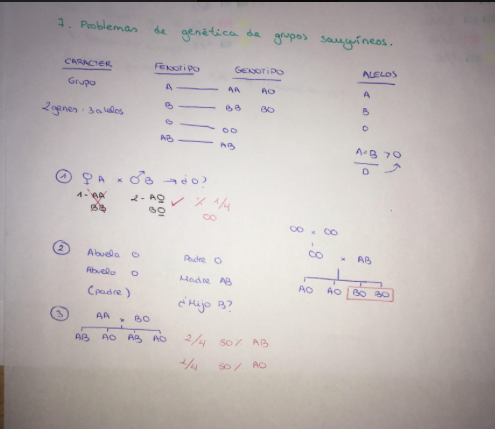 7. Problemas de genética de grupos sanguíneos.
CARÁCTER FENOTIPO GENOTIPO ALELOS
Grupo A — AA AO A
2 genes : 3 alelos B — BB BO B
O — OO O
AB — AB
A=B > O
D
① ♀ A × ♂ B → ¿O?
1- AA 2- AO ✓ % 1/4
BB BO OO
② Abuela O Padre O
Abuelo O Madre AB
(padre) ¿Hijo B?
OO × OO
OO × AB
AO AO BO BO
③ AA × BO
AB AO AB AO
2/4 50% AB
2/4 50% AO